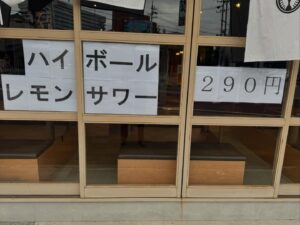 ハイボール
レモンサワー
290円